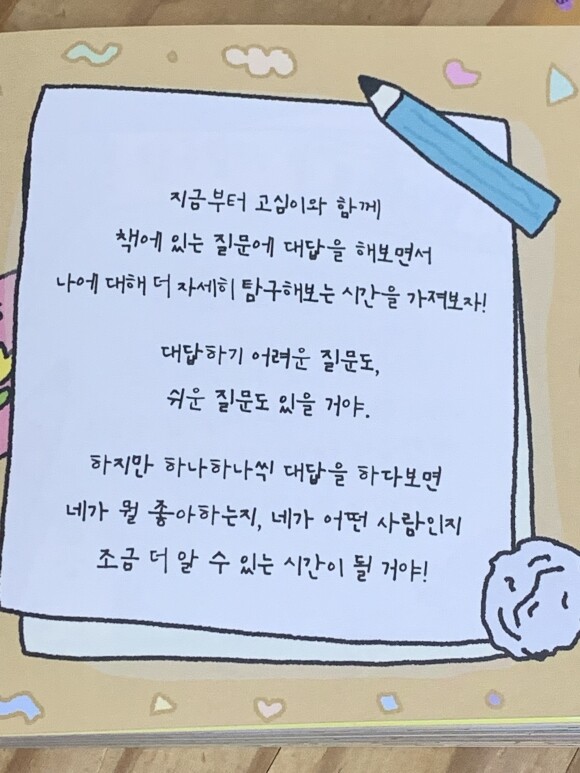 지금부터 고심이와 함께
책에 있는 질문에 대답을 해보면서
나에 대해 더 자세히 탐구해보는 시간을 가져보자!
대답하기 어려운 질문도,
쉬운 질문도 있을 거야.
하지만 하나하나씩 대답을 하다보면
네가 뭘 좋아하는지, 네가 어떤 사람인지
조금 더 알 수 있는 시간이 될 거야!